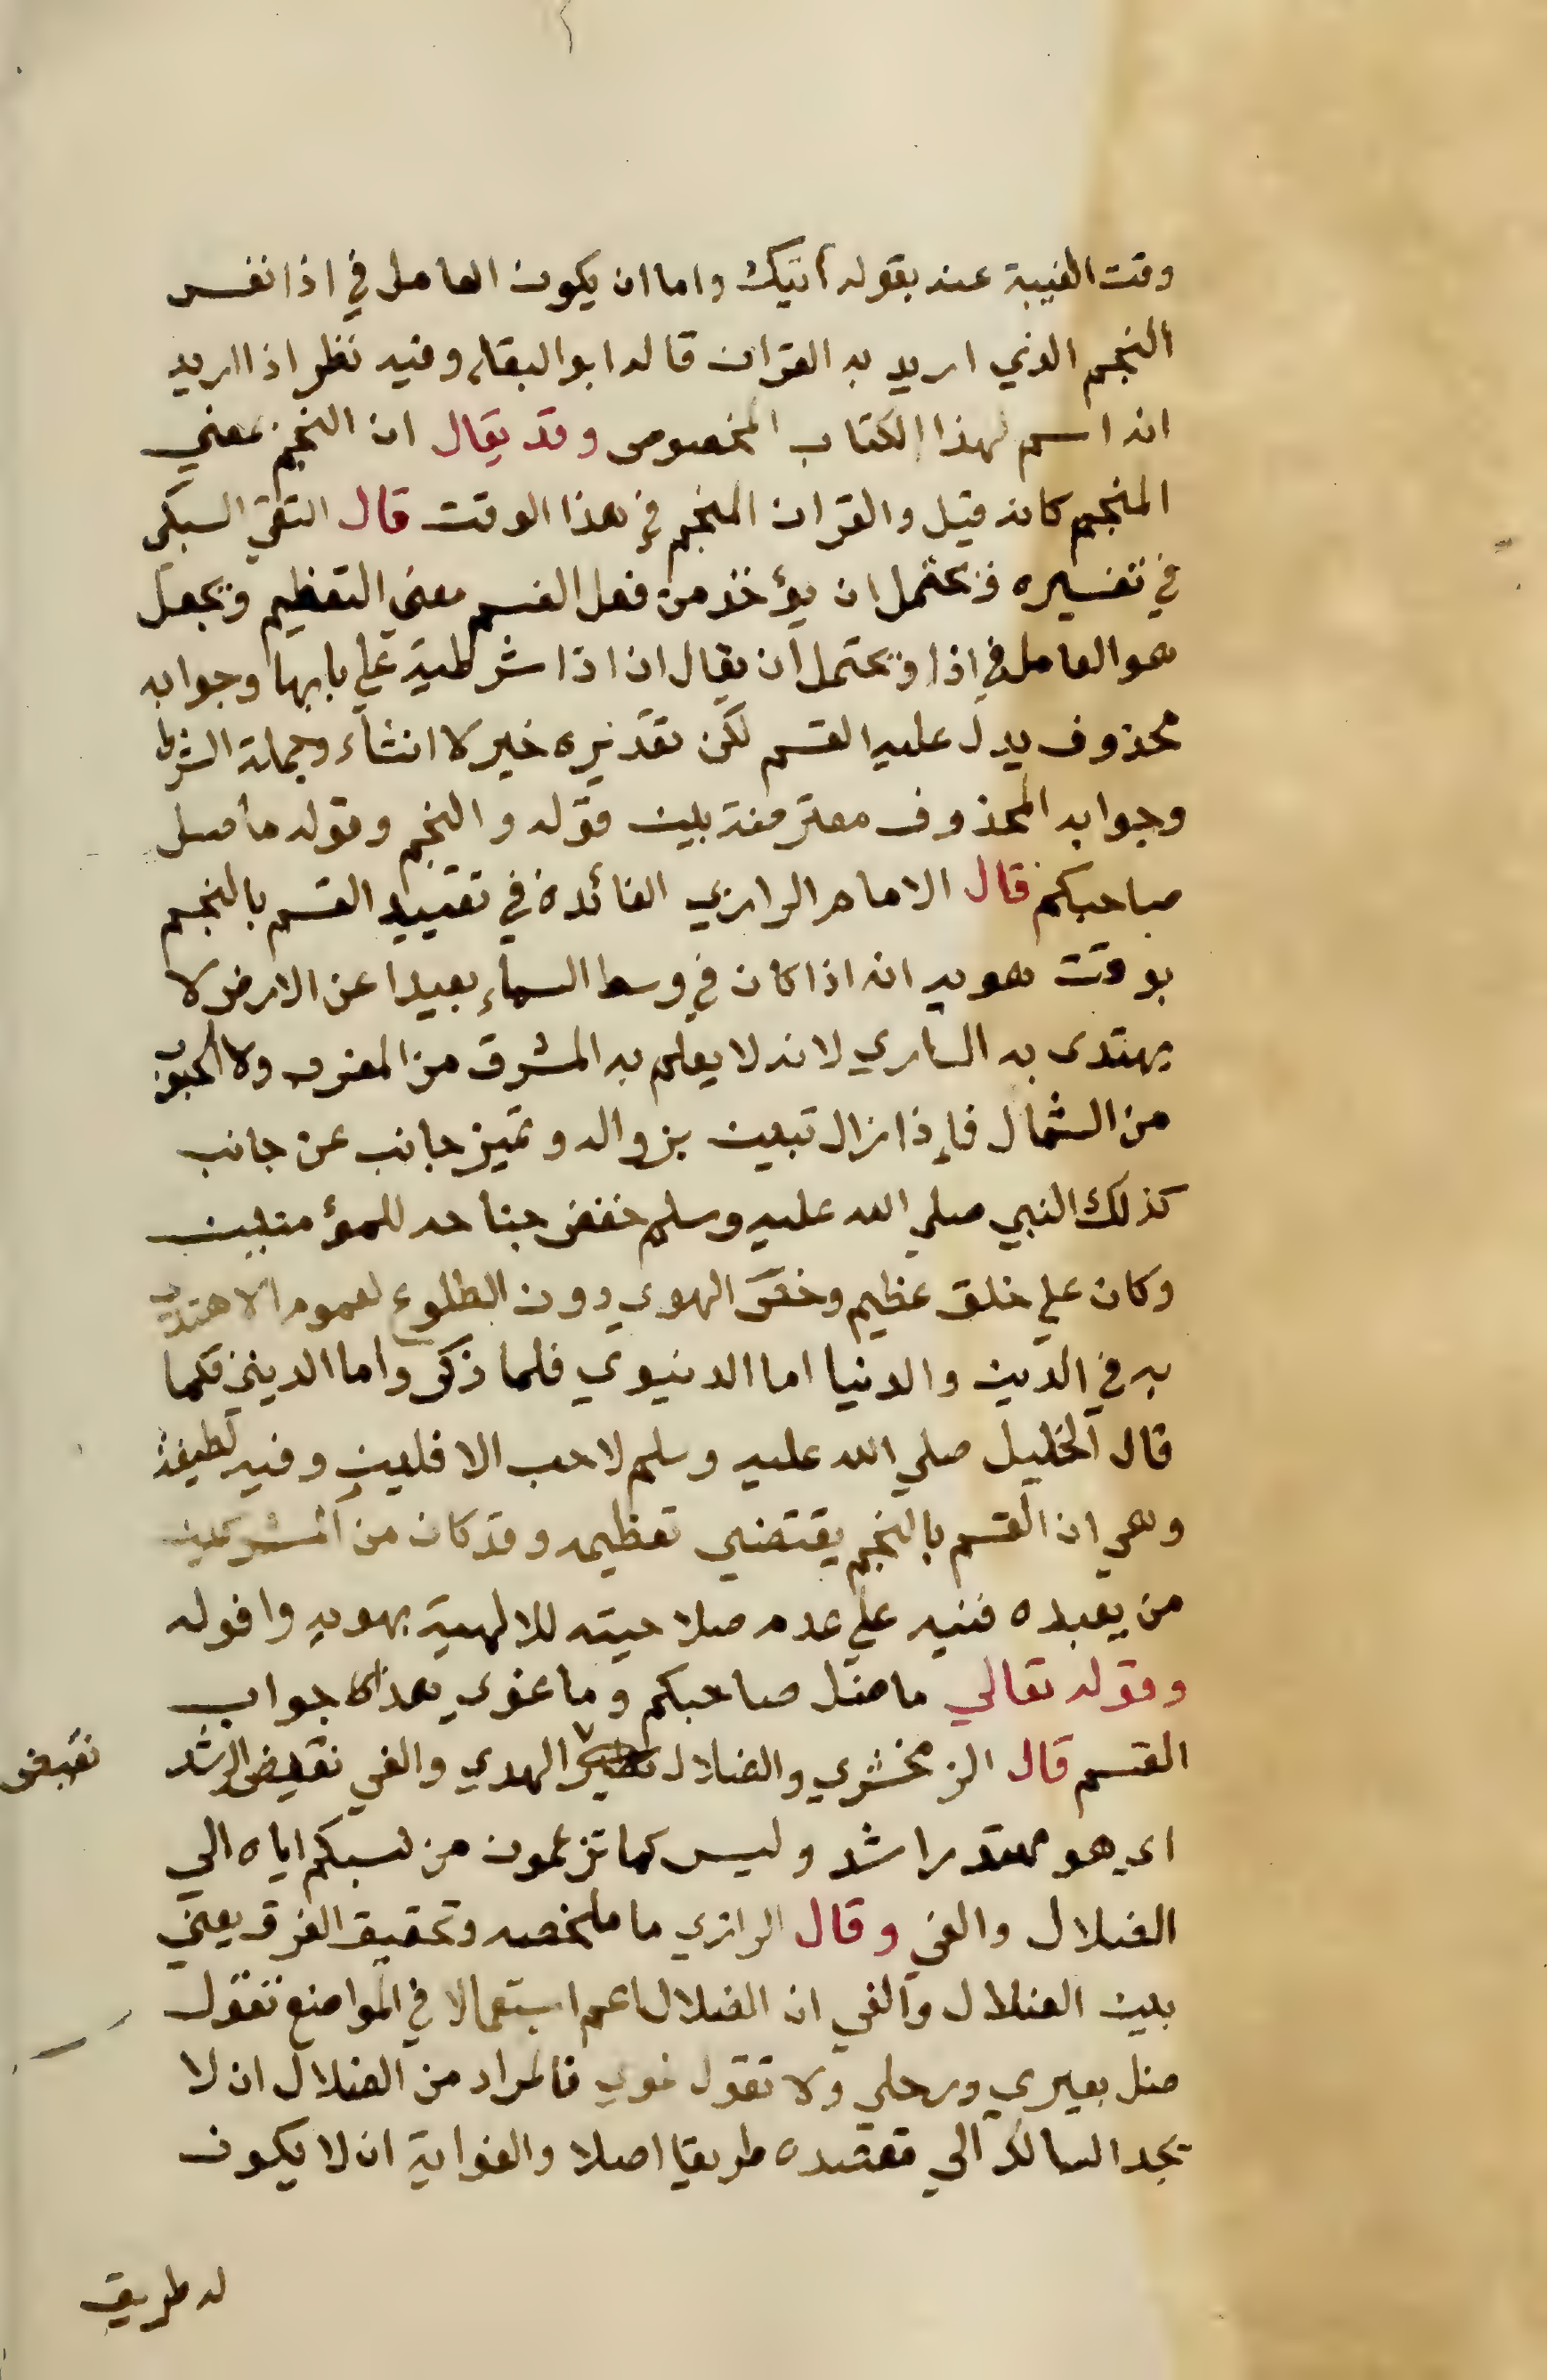 وقت الغيبة عنه بقوله آتيك واما ان يكون العامل في اذا نفس
النجم الذي اريد به القرآن قاله ابو البقاء وفيه نظر اذا اريد
انه اسم لهذا الكتاب المخصوص وقد يقال ان النجم بمعني
المنجم كانه قيل والقران المنجم في هذا الوقت قال التقي السبكي
في تفسيره ويحتمل ان يؤخذ من فعل القسم معني التعظيم ويجعل
هو العامل في اذا ويحتمل ان يقال ان اذا شرطية علي بابها وجوابه
محذوف يدل عليه القسم لكن تقديره خبر لا انشاء وجملة الشرط
وجوابه المحذوف معترضة بين قوله والنجم وقوله ما ضل
صاحبكم قال الامام الرازي الفائدة في تقييد القسم بالنجم
بوقت هويه انه اذا كان في وسط السماء بعيدا عن الارض لا
يهتدى به الساري لانه لا يعلم به المشرق من المغرب ولا الجنوب
من الشمال فإذا زال تبين بزواله وتميز جانب عن جانب
كذلك النبي صلي الله عليه وسلم خفض جناحه للمؤمنين
وكان علي خلق عظيم وخص الهوي دون الطلوع لعموم الاهتداء
به في الدين والدنيا اما الدنيوي فلما ذكر واما الديني فكما
قال الخليل صلي الله عليه وسلم لا احب الافلين وفيه لطيفة
وهي ان القسم بالنجم يقتضي تعظيمه وقد كان من المشركين
من يعبده فنبه علي عدم صلاحيته للالهية بهويه وافوله
وقوله تعالي ما ضل صاحبكم وما غوي هذا جواب
القسم قال الزمخشري والضلال الهدي والغي نقيض الرشد
نقيض
اي هو مهتد راشد وليس كما تزعمون من نسبكم اياه الي
الضلال والغي وقال الرازي ما ملخصه وتحقيق الفرق يعني
بين الضلال والغي ان الضلال اعم استعمالا في المواضع تقول
ضل بعيري ورحلي ولا تقول غوي فالمراد من الضلال ان لا
يجد السالك الي مقصده طريقا اصلا والغواية ان لا يكون
له طريق